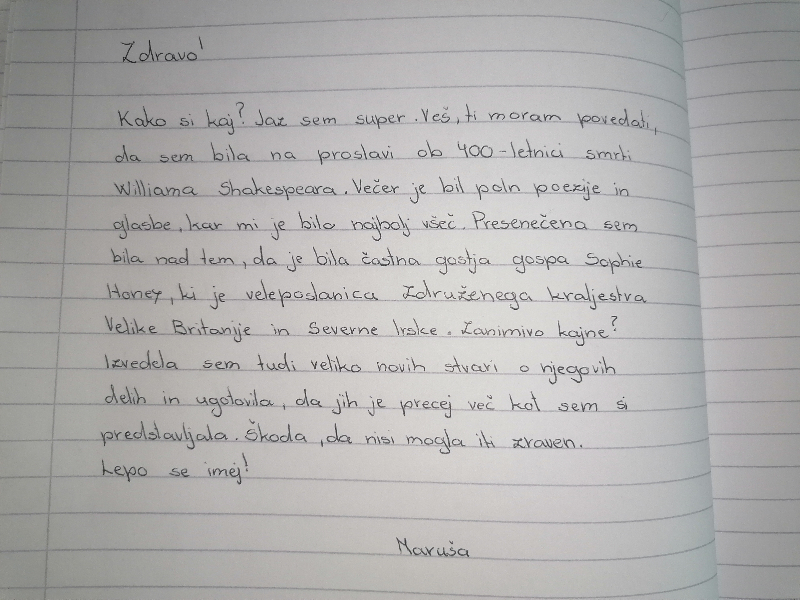 Zdravo!
Kako si kaj? Jaz sem super. Veš, ti moram povedati,
da sem bila na proslavi ob 400-letnici smrti
Williama Shakespeara. Večer je bil poln poezije in
glasbe, kar mi je bilo najbolj všeč. Presenečena sem
bila nad tem, da je bila častna gostja gospa Sophie
Honey, ki je veleposlanica Združenega kraljestva
Velike Britanije in Severne Irske. Zanimivo kajne?
Izvedela sem tudi veliko novih stvari o njegovih
delih in ugotovila, da jih je precej več kot sem si
predstavljala. Škoda, da nisi mogla iti zraven.
Lepo se imej!
Maruša